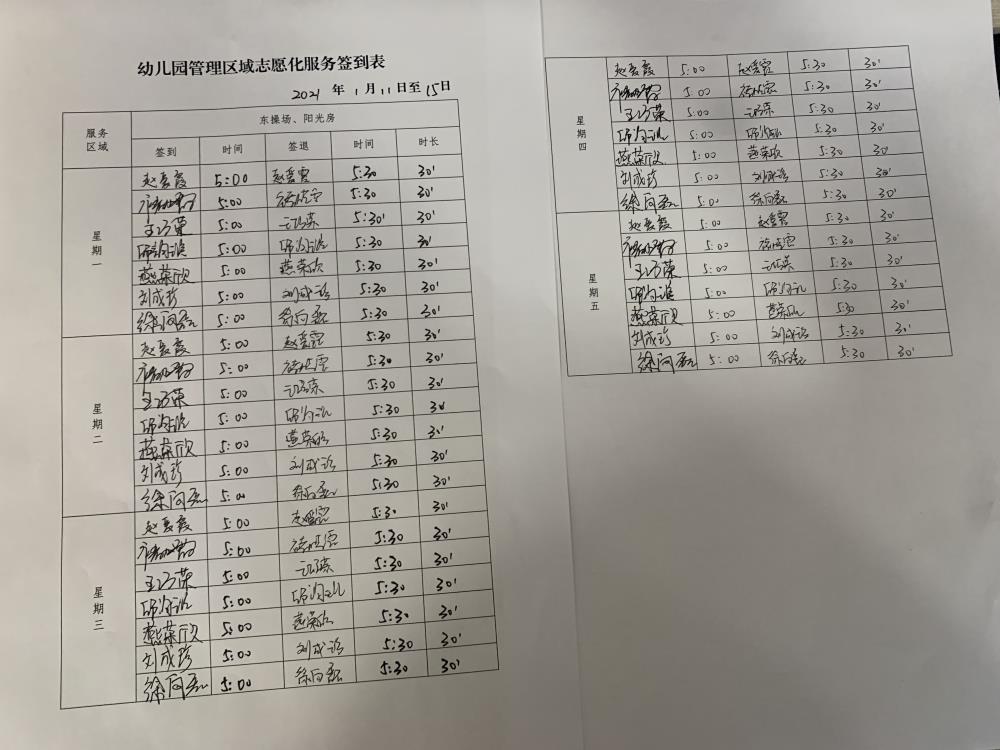 幼儿园管理区域志愿化服务签到表
2021 年 1 月 11 日至 15 日
服务区域 东操场、阳光房
签到 时间 签退 时间 时长
星期一
赵爱霞 5:00 赵爱霞 5:30 30'
5:00 5:30 30'
王巧荣 5:00 王巧荣 5:30' 30'
5:00 5:30 30'
燕荣欣 5:00 燕荣欣 5:30 30'
刘成珍 5:00 刘成珍 5:30 30'
徐向磊 5:00 徐向磊 5:30 30'
星期二
赵爱霞 5:00 赵爱霞 5:30 30'
5:00 5:30 30'
王巧荣 5:00 王巧荣 5:30 30'
5:00 5:30 30
燕荣欣 5:00 燕荣欣 5:30 30'
刘成珍 5:00 刘成珍 5:30 30'
徐向磊 5:00 徐向磊 5:30 30'
星期三
赵爱霞 5:00 赵爱霞 5:30 30'
5:00 5:30 30'
王巧荣 5:00 王巧荣 5:30 30'
5:00 5:30 30'
燕荣欣 5:00 燕荣欣 5:30 30'
刘成珍 5:00 刘成珍 5:30 30'
徐向磊 5:00 徐向磊 5:30 30'
星期四
赵爱霞 5:00 赵爱霞 5:30 30'
5:00 5:30 30'
王巧荣 5:00 王巧荣 5:30 30'
5:00 5:30 30'
燕荣欣 5:00 燕荣欣 5:30 30'
刘成珍 5:00 刘成珍 5:30 30'
徐向磊 5:00 徐向磊 5:30 30'
星期五
赵爱霞 5:00 赵爱霞 5:30 30'
5:00 5:30 30'
王巧荣 5:00 王巧荣 5:30 30'
5:00 5:30 30'
燕荣欣 5:00 燕荣欣 5:30 30'
刘成珍 5:00 刘成珍 5:30 30'
徐向磊 5:00 徐向磊 5:30 30'